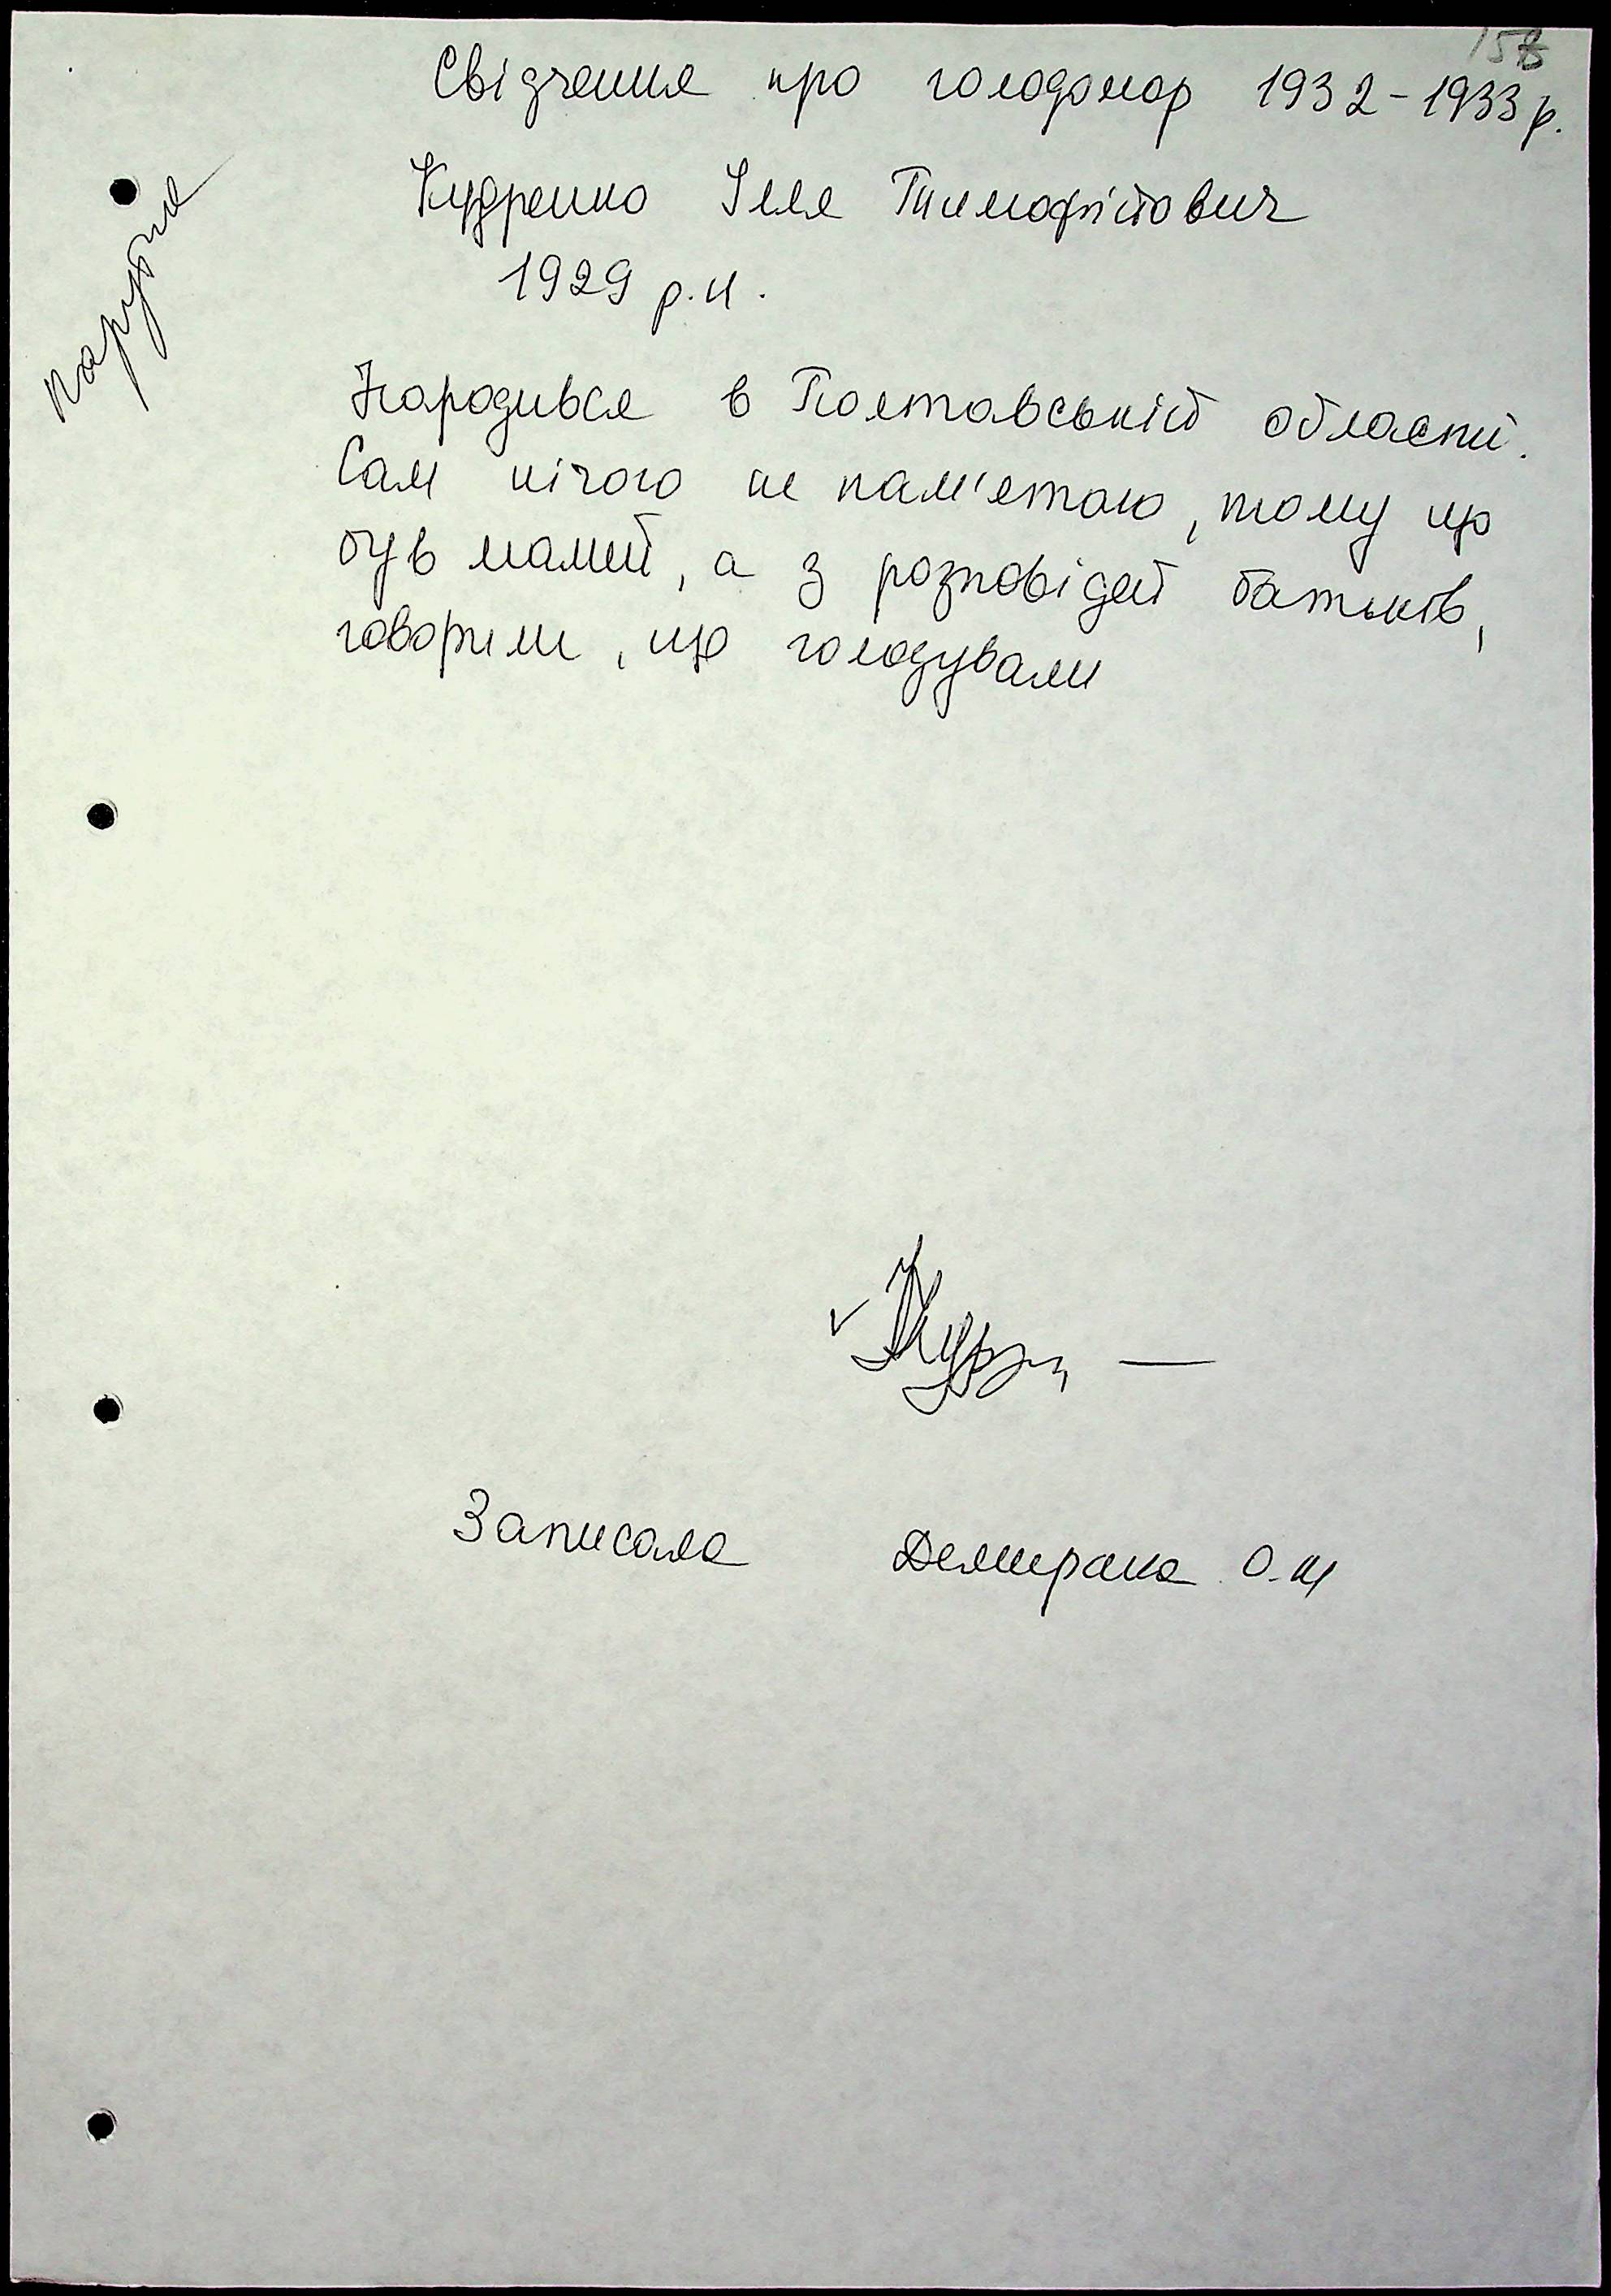 158
Свідчення про голодомор 1932-1933 р.
Кудренко Ілля Тимофійович
1929 р.н.
Народився в Полтавській області.
Сам нічого не пам'ятаю, тому що
був малий, а з розповідей батьків,
говорили, що голодували
Записала О.М